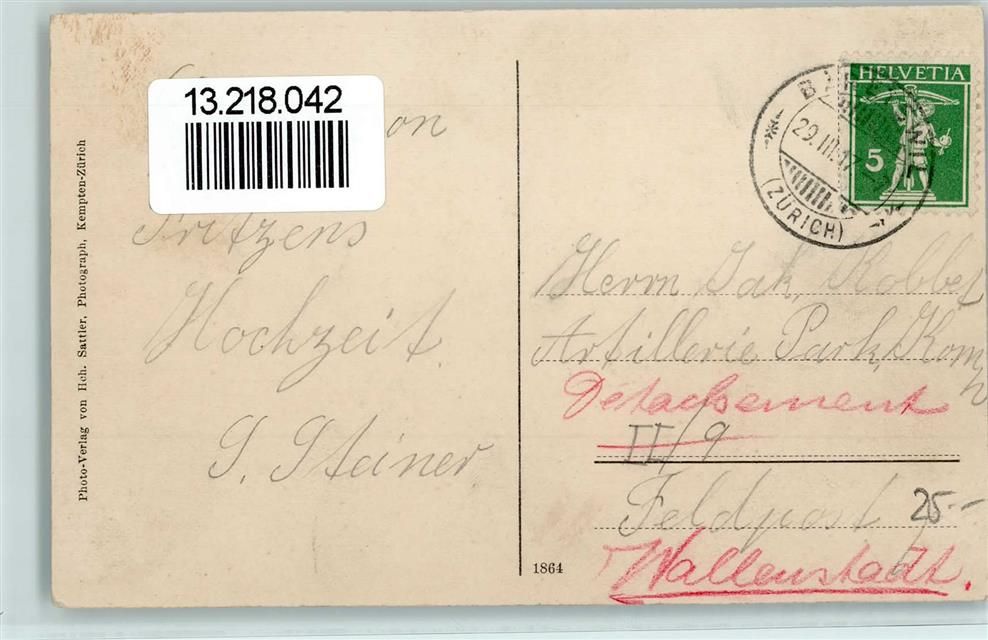 13.218.042
on
Fritzens
Hochzeit.
S. Steiner.
Photo-Verlag von Hch. Sattler, Photograph, Kempten-Zürich
HELVETIA
5
29.III.17
(ZÜRICH)
Herrn Jak. Kobbel
Artillerie Park, Komp
Détachement
II/9
Feldpost
25.-
Wallenstadt.
1864